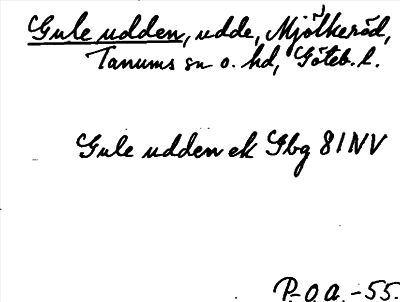 Gule udden, udde, Mjölkeröd,
Tanums sn o. hd, Göteb. l.
Gule udden ek Gbg 81NV
P.-O.A.-55.